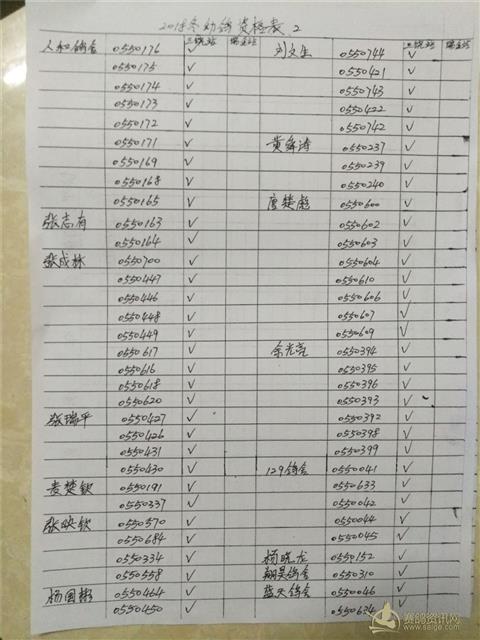 2018冬幼鸽资格表 2
三绕站 瑞金站 三绕站 瑞金站
人和鸽舍 0550176 ✓ 刘文生 0550744 ✓
0550175 ✓ 0550421 ✓
0550174 ✓ 0550743 ✓
0550173 ✓ 0550422 ✓
0550172 ✓ 0550742 ✓
0550171 ✓ 黄舜涛 0550237 ✓
0550169 ✓ 0550239 ✓
0550168 ✓ 0550240 ✓
0550165 ✓ 唐楚彪 0550600 ✓
张志有 0550163 ✓ 0550602 ✓
0550164 ✓ 0550603 ✓
张成林 0550700 ✓ 0550604 ✓
0550447 ✓ 0550610 ✓
0550446 ✓ 0550606 ✓
0550448 ✓ 0550607 ✓
0550449 ✓ 0550609 ✓
0550617 ✓ 余光亮 0550394 ✓
0550616 ✓ 0550395 ✓
0550618 ✓ 0550396 ✓
0550620 ✓ 0550393 ✓
张瑞平 0550427 ✓ 0550392 ✓
0550426 ✓ 0550398 ✓
0550431 ✓ 0550399 ✓
0550430 ✓ 129鸽舍 0550041 ✓
麦楚钦 0550191 ✓ 0550633 ✓
0550337 ✓ 0550042 ✓
张映钦 0550570 ✓ 0550044 ✓
0550684 ✓ 0550045 ✓
0550334 ✓ 杨晓龙 0550152 ✓
0550558 ✓ 翔昊鸽舍 0550310 ✓
杨国彬 0550464 ✓ 蓝天鸽舍 0550046 ✓
0550450 ✓ 0550634 ✓
赛鸽资讯网
www.saige.com